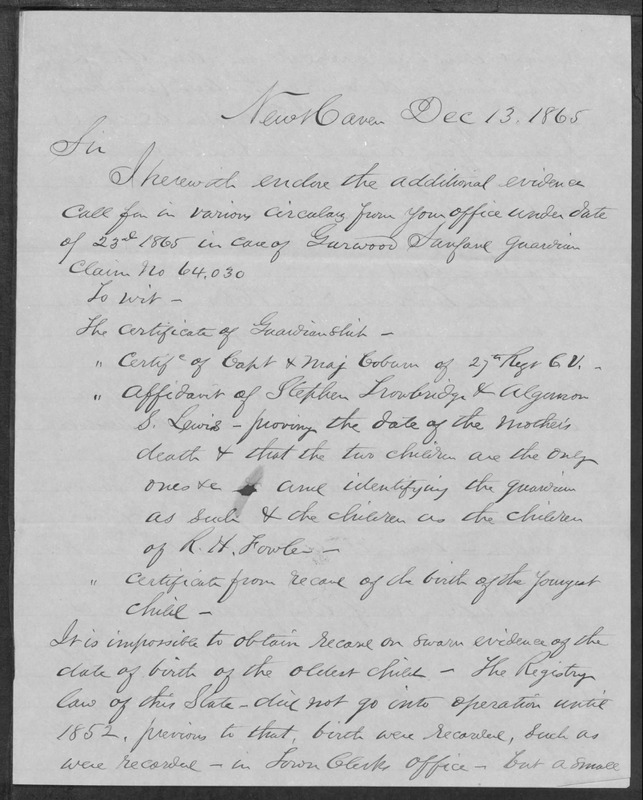 New Haven Dec 13. 1865
Sir
I herewith enclose the additional evidence
call for in various circulars from your office under date
of 23d 1865 in case of Gurwood Sanford guardian
Claim No 64.030
To wit -
The certificate of Guardianship -
" Certifc of Capt & Maj Coburn of 27th Regt C.V. -
" Affidavit of Stephen Trowbridge & Algernon
S. Lewis - proving the date of the mother's
death & that the two children are the only
ones &c and identifying the guardian
as such & the children as the children
of R. H. Fowler -
" Certificate from record of the birth of the youngest
child -
It is impossible to obtain record or sworn evidence of the
date of birth of the oldest child - The Registry
law of this State - did not go into operation until
1852, previous to that, birth were recorded, such as
were recorded - in Town Clerks office - but a small